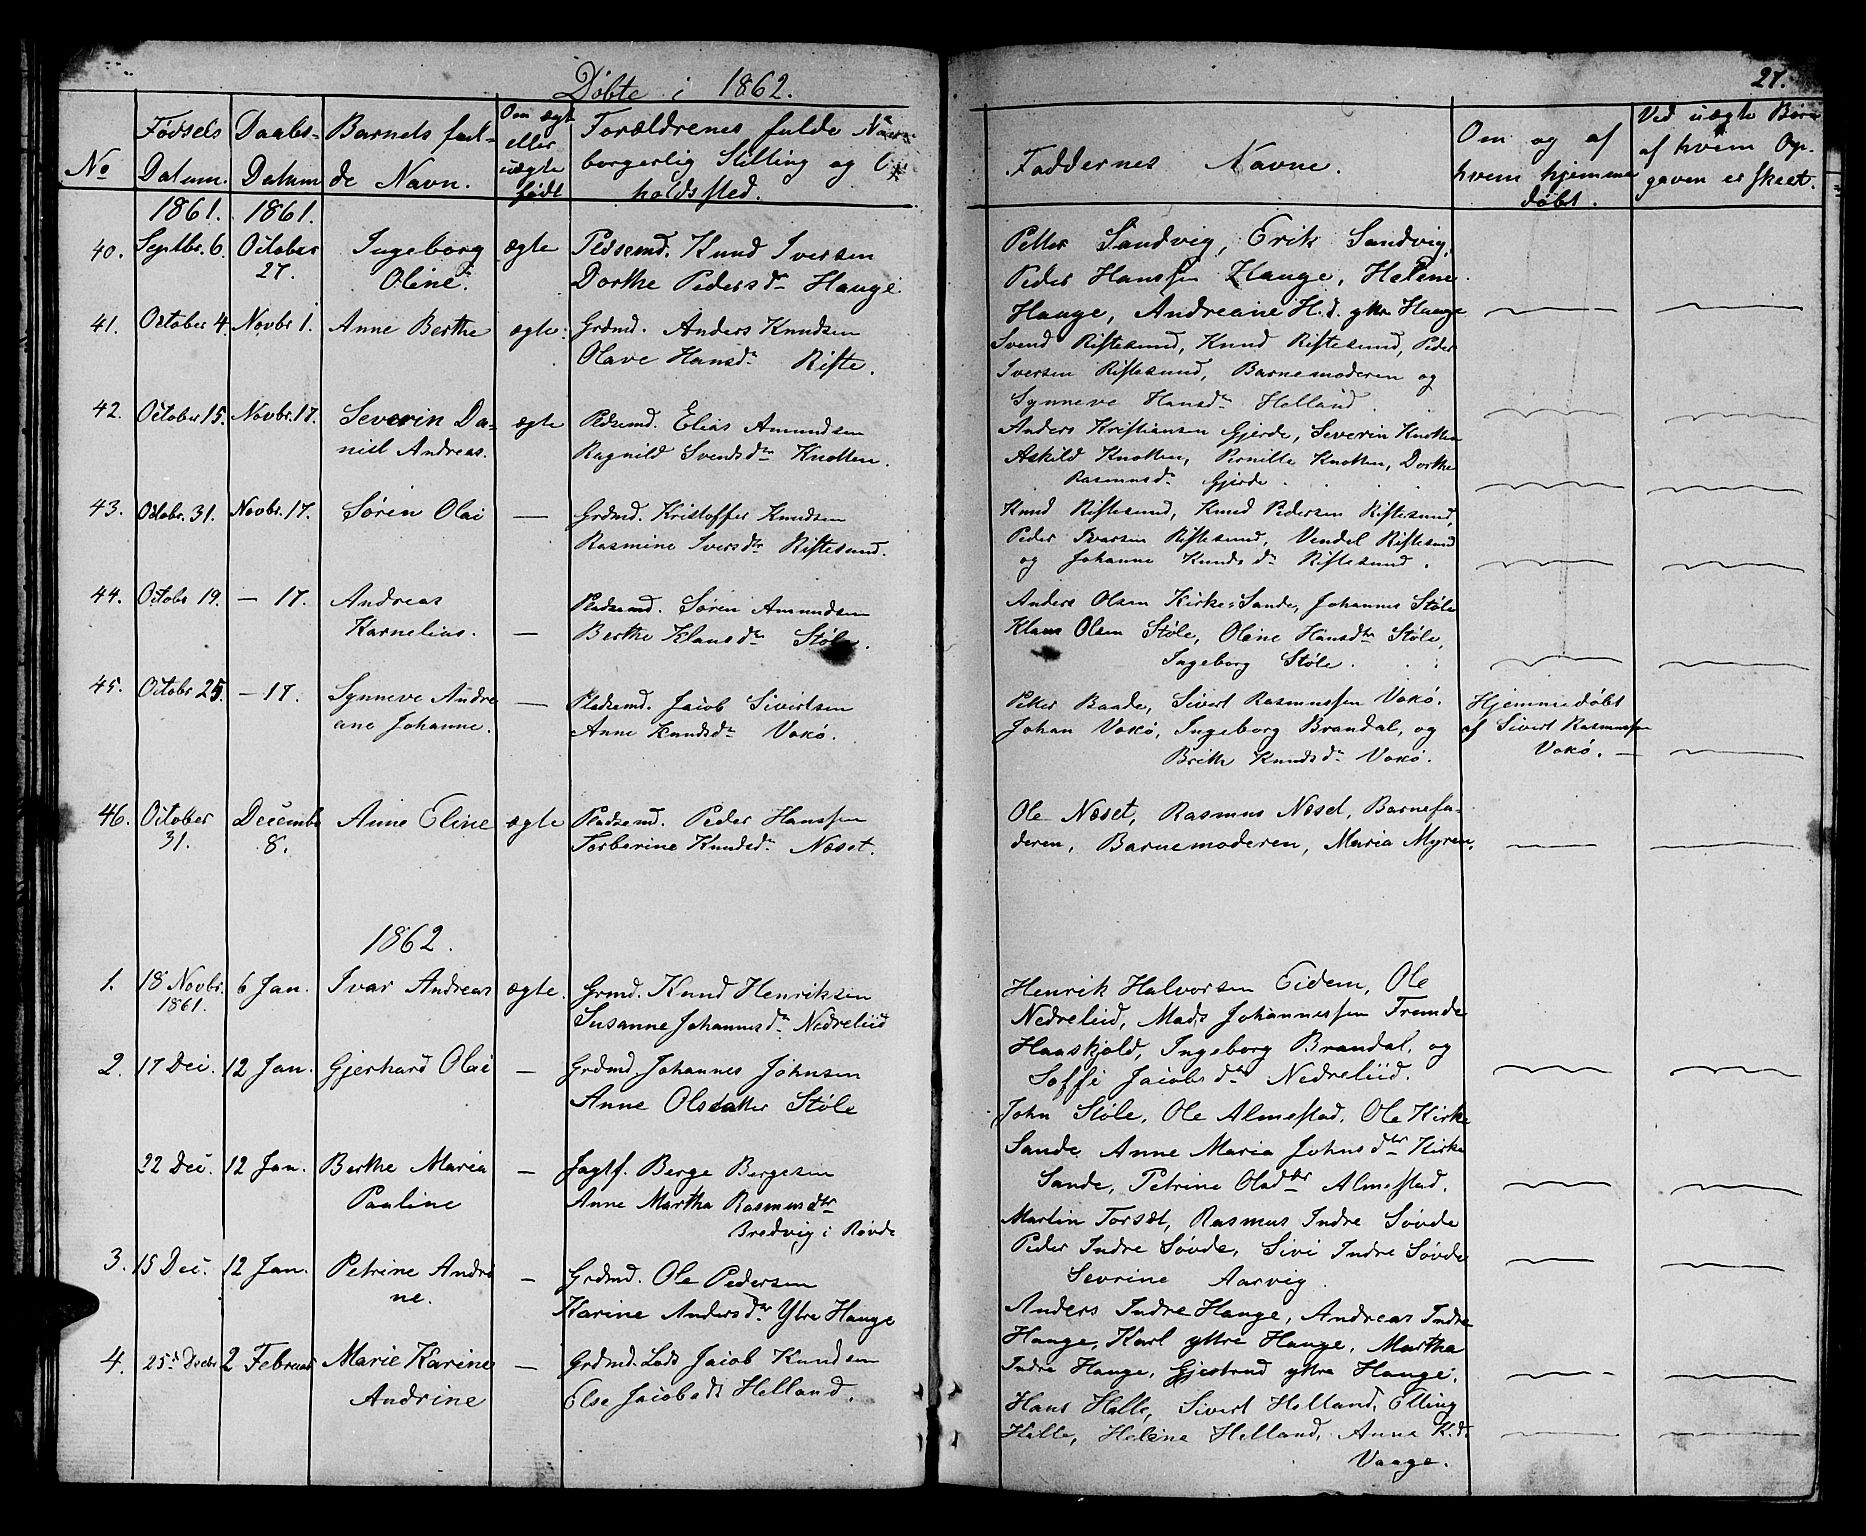 Døbte i 1862.
27.
No
Fødsels Datum.
Daabs- Datum
Barnets ful- de Navn.
Om ægte eller uægte født
Forældrenes fulde Navn
borgerlig Stilling og Op
holdssted.
Faddernes Navne.
Om og af
hvem hjemme
døbt.
Ved uægte Børn
af hvem Op-
gaven er skeet.
1861. 1861.
40. Septbr. 6. October 27. Ingeborg Oline. ægte Pldsemd. Knud Iversen
Dorthe Pedersdr Hauge
Petter Sandvig, Erik Sandvig,
Peder Hanssen Hauge, Helene
Hauge, Andreane H.d. yttre Hauge
41. October 4. Novbr 1. Anne Berthe ægte. Grdmd. Anders Knudsen
Olave Hansdr Riste.
Svend Riftesund, Knud Riftesund, Peder
Iversen Riftesund, Barnemoderen og
Synneve Hansdr Helland
42. October 15. Novbr. 17. Severin Da-
niel Andreas. ægte Pldsemd. Elias Amundsen
Ragnild Svendsdtr Knotten.
Anders Kristiansen Gjerde, Severin Knotten
Askild Knotten, Pernille Knotten, Dorthe
Rasmusdr Gjerde.
43. Octobr. 31. Novbr. 17. Søren Olai — Grdmd. Kristoffer Knudsen
Rasmine Iversdtr Riftesund.
Knud Riftesund, Knud Pedersen Riftesund,
Peder Ivarsen Riftesund, Vendel Riftesund
og Johanne Knudsdr Riftesund.
44. Octobr 19. — 17. Andreas
Karnelius. — Pladsemd. Søren Amundsen
Berthe Klausdtr Støle.
Anders Olsen Kirke-Sande, Johannes Støle
Klaus Olsen Støle, Oline Hansdtr Støle,
Ingeborg Støle.
45. Octobr 25. — 17. Synneve Andre
ane Johanne. — Pladsemd. Jacob Sivertsen
Anne Knudsdr Voxø.
Petter Baade, Sivert Rasmussen Voxø.
Johan Voxø, Ingeborg Brandal, og
Brithe Knudsdr Voxø.
Hjemmedøbt
af Sivert Rasmussen
Voxø. —
46. October 31. Decembr 8. Anne Eline ægte Pladsemd. Peder Hanssen
Torberine Knudsdr Næset.
Ole Næset, Rasmus Næset, Barnefa-
deren, Barnemoderen, Maria Myren.
1862.
1. 18 Novbr. 1861. 6 Jan. Ivar Andreas ægte. Grmd. Knud Henriksen
Susanne Johannesdr Nedreliid
Henrik Halvorsen Eidem, Ole
Nedreliid, Mads Johannessen Fremde
Haaskjold, Ingeborg Brandal, og
Soffi Jacobsdtr Nedreliid.
2. 17 Dec. 12 Jan. Gjerhard Olai — Grdmd. Johannes Johnsen
Anne Olsdatter Støle
John Støle, Ole Almestad, Ole Kirke
Sande Anne Maria Johnsdtr Kirke
Sande, Petrine Olsdtr Almestad.
22 Dec. 12 Jan. Berthe Maria
Pauline — Jagtf. Berge Bergesen
Anne Martha Rasmusdtr
Bredvig i Røvde
Martin Torset, Rasmus Indre Søvde
Peder Indre Søvde, Sivi Indre Søvde
Sevrine Aarvig.
3. 15 Dec. 12 Jan. Petrine Andri
ne. — Grdmd. Ole Pedersen
Karine Andersdtr Ytre Hauge
Anders Indre Hauge, Andreas Indre
Hauge, Karl yttre Hauge, Martha
Indre Hauge, Gjertrud yttre Hauge.
4. 25d Decbr 2 Februar Marie Karine
Andrine — Grdmd. Lads Jacob Knudsen
Else Jacobsdt Helland.
Hans Helle, Sivert Helland, Elling
Hille, Helene Helland, Anna K.d.
Vaage.